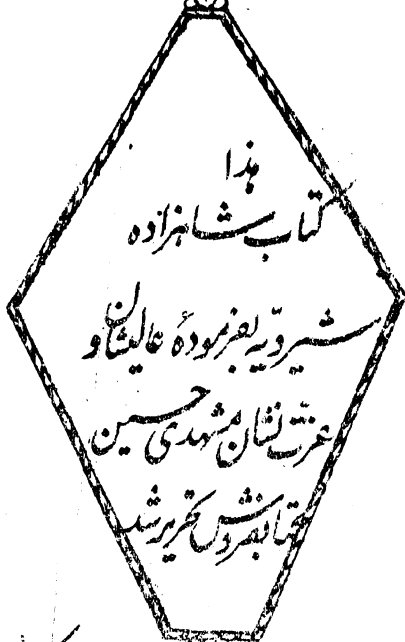 هذا
کتاب شاهزاده
شیرویّه بفرمودهٔ عالیشان و
عزّت نشان مشهدی حسین
کتابفروش تحریر شد